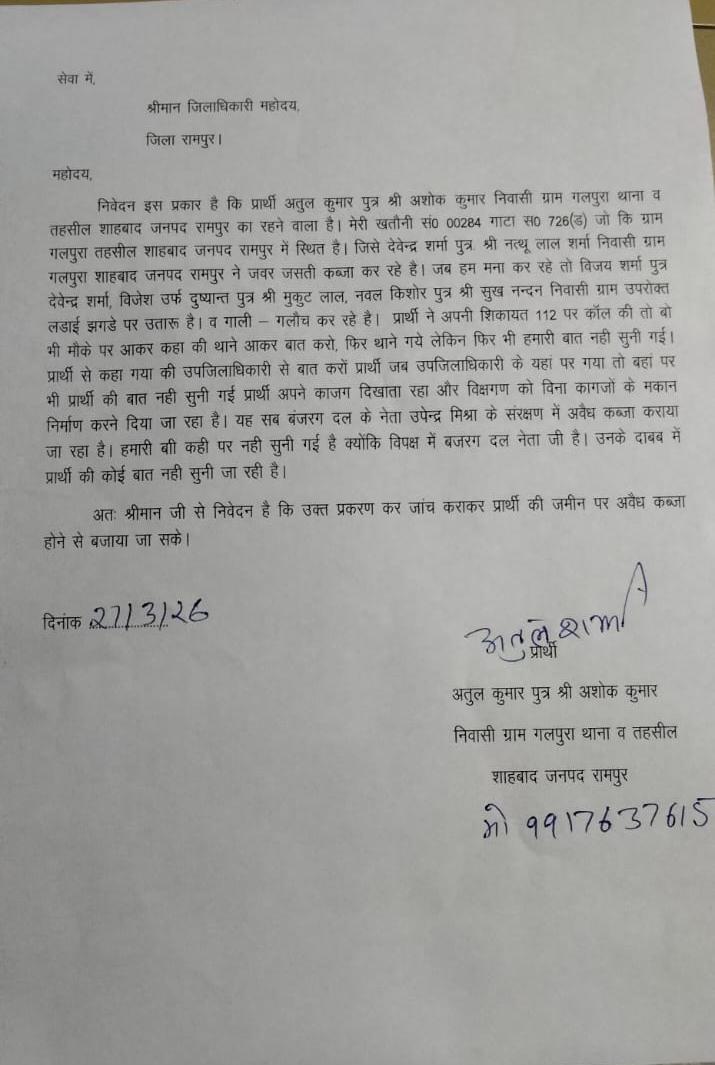 सेवा में,
श्रीमान जिलाधिकारी महोदय,
जिला रामपुर।
महोदय,
निवेदन इस प्रकार है कि प्रार्थी अतुल कुमार पुत्र श्री अशोक कुमार निवासी ग्राम गलपुरा थाना व
तहसील शाहबाद जनपद रामपुर का रहने वाला है। मेरी खतौनी सं0 00284 गाटा स0 726(ड) जो कि ग्राम
गलपुरा तहसील शाहबाद जनपद रामपुर में स्थित है। जिसे देवेन्द्र शर्मा पुत्र श्री नत्थू लाल शर्मा निवासी ग्राम
गलपुरा शाहबाद जनपद रामपुर ने जवर जसती कब्जा कर रहे है। जब हम मना कर रहे तो विजय शर्मा पुत्र
देवेन्द्र शर्मा, विजेश उर्फ दुष्यान्त पुत्र श्री मुकुट लाल, नवल किशोर पुत्र श्री सुख नन्दन निवासी ग्राम उपरोक्त
लडाई झगडे पर उतारू है। व गाली – गलौच कर रहे है। प्रार्थी ने अपनी शिकायत 112 पर कॉल की तो बो
भी मौके पर आकर कहा की थाने आकर बात करो, फिर थाने गये लेकिन फिर भी हमारी बात नही सुनी गई।
प्रार्थी से कहा गया की उपजिलाधिकारी से बात करों प्रार्थी जब उपजिलाधिकारी के यहां पर गया तो बहां पर
भी प्रार्थी की बात नही सुनी गई प्रार्थी अपने काजग दिखाता रहा और विक्षगण को विना कागजों के मकान
निर्माण करने दिया जा रहा है। यह सब बंजरग दल के नेता उपेन्द्र मिश्रा के संरक्षण में अवैध कब्जा कराया
जा रहा है। हमारी बाी कही पर नही सुनी गई है क्योंकि विपक्ष में बजरग दल नेता जी है। उनके दाबब में
प्रार्थी की कोई बात नही सुनी जा रही है।
अतः श्रीमान जी से निवेदन है कि उक्त प्रकरण कर जांच कराकर प्रार्थी की जमीन पर अवैध कब्जा
होने से बजाया जा सके।
दिनांक 27/3/26
अतुल शर्मा
प्रार्थी
अतुल कुमार पुत्र श्री अशोक कुमार
निवासी ग्राम गलपुरा थाना व तहसील
शाहबाद जनपद रामपुर
मो 9917637615